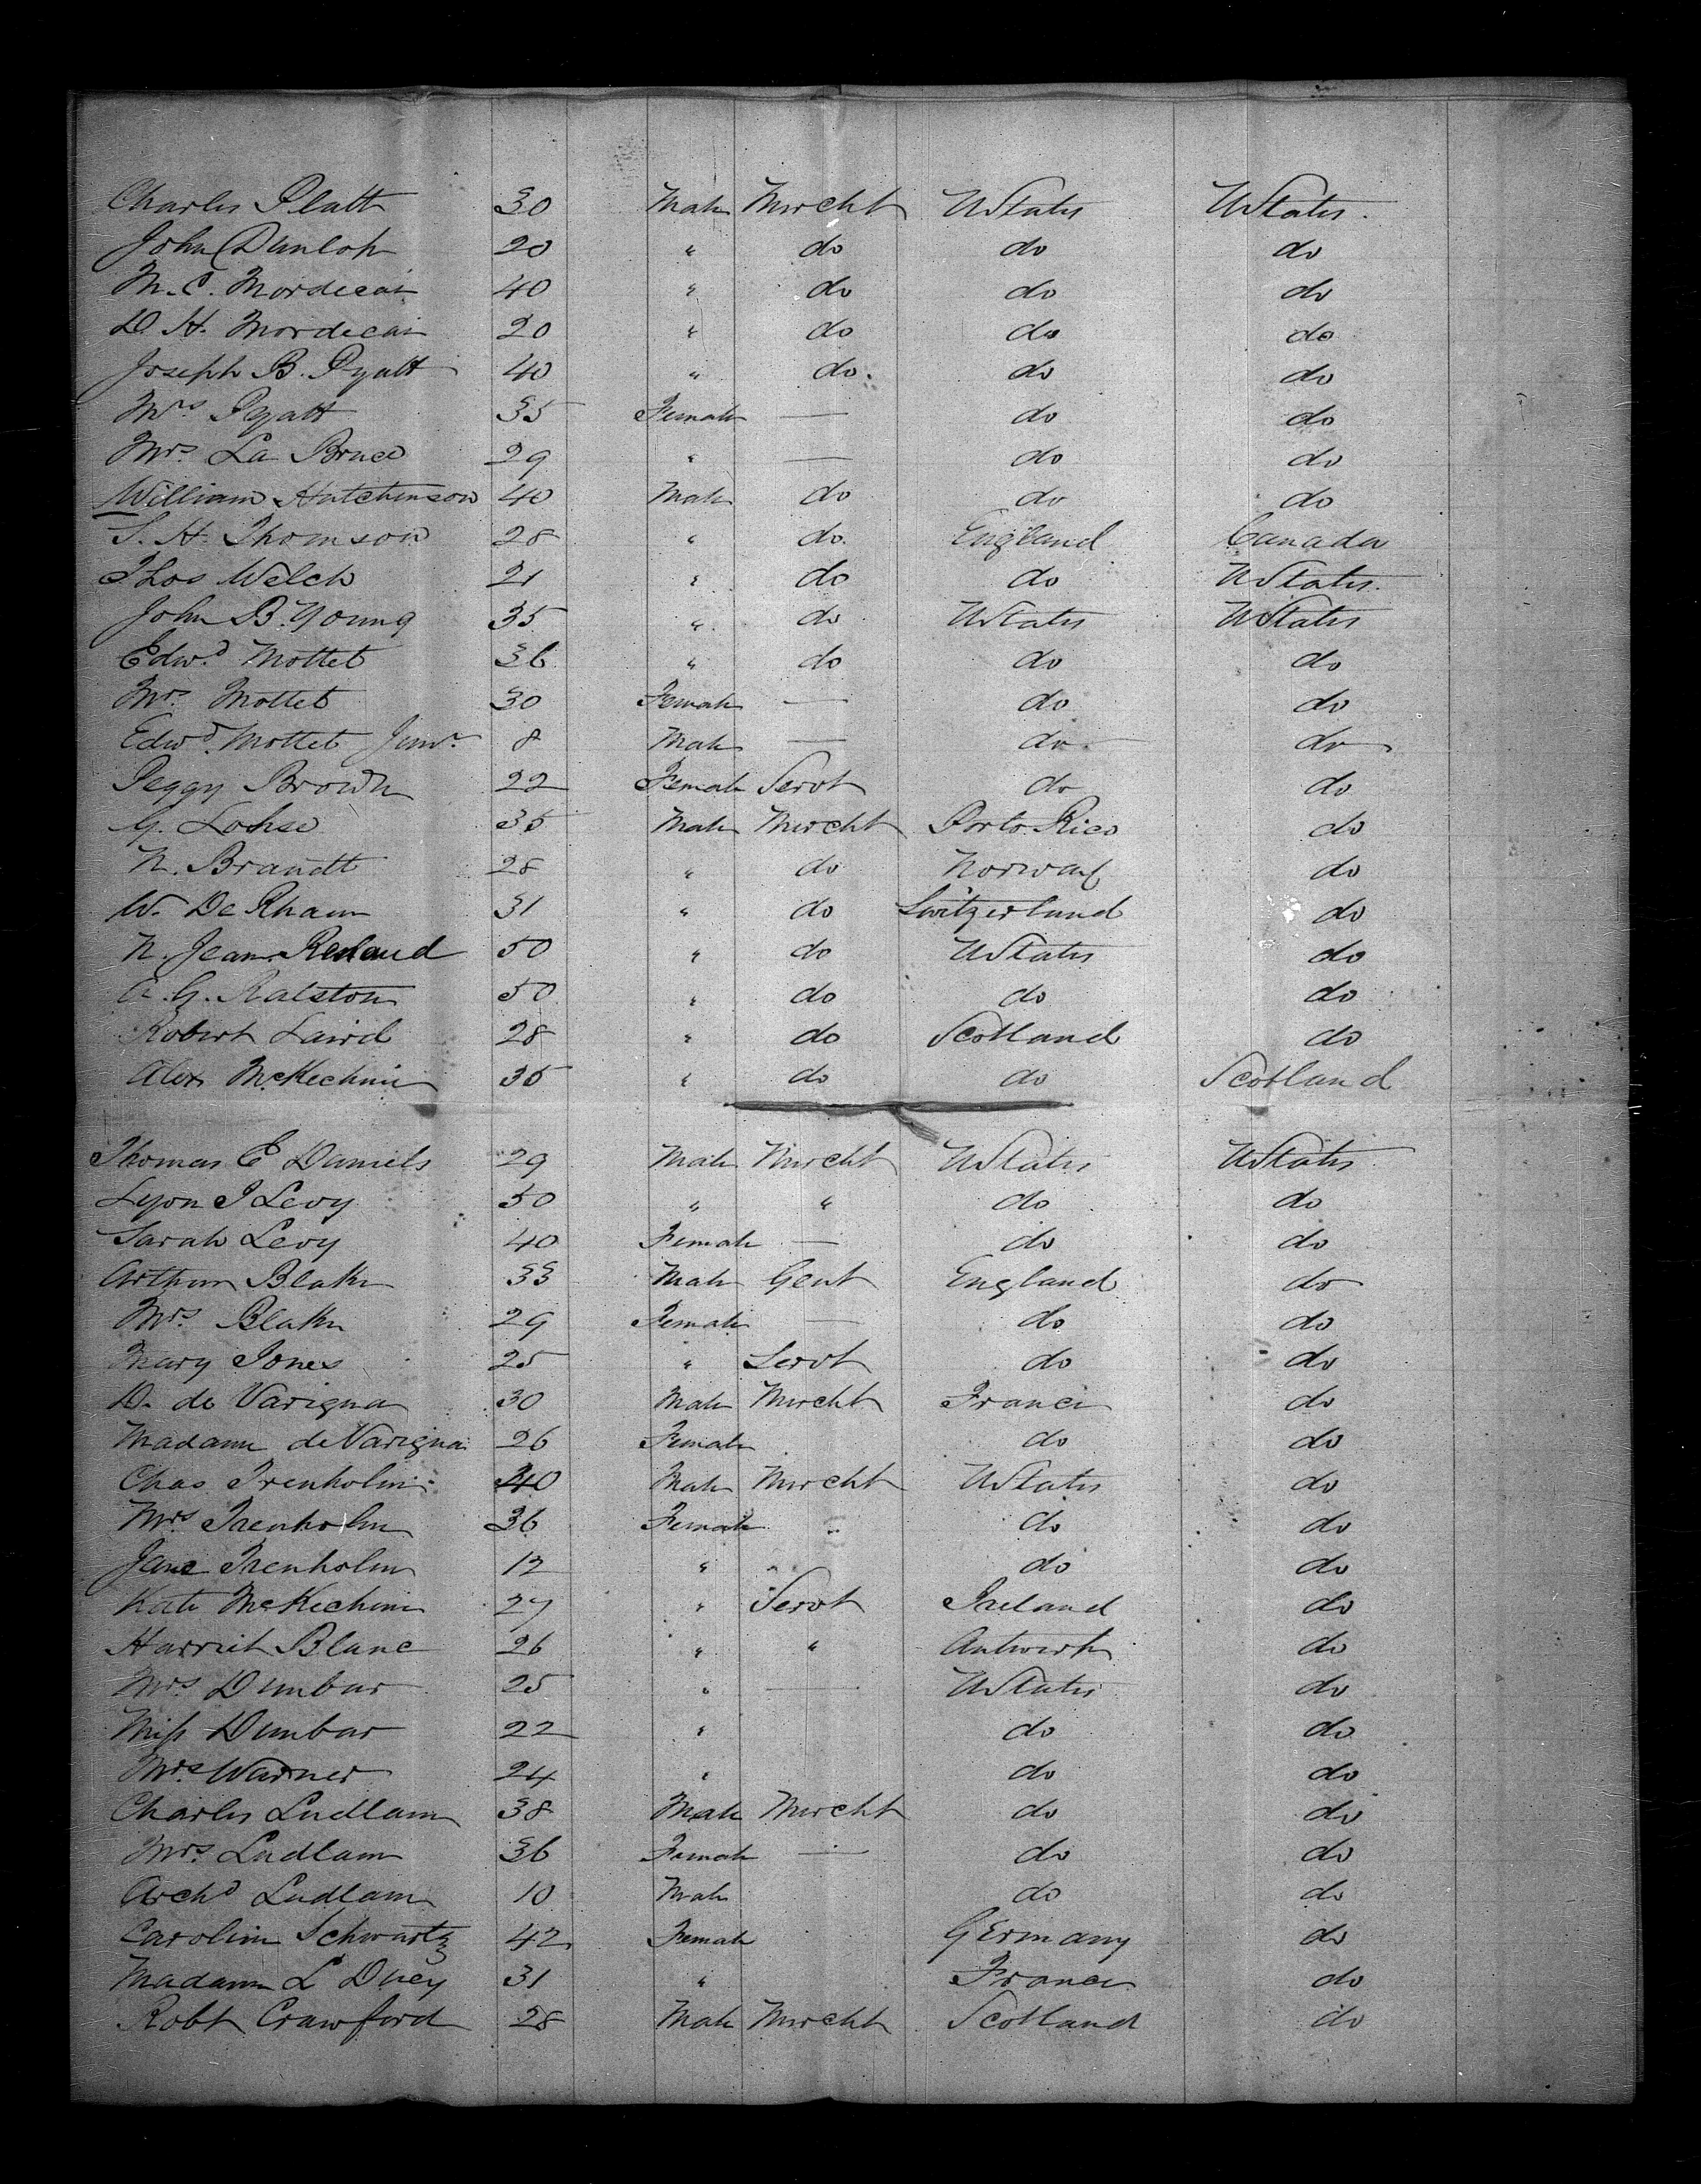 Charles Platt 30 Male Mercht UStates UStates.
John Dunlop 20 " do do do
M. C. Mordecai 40 " do do do
D. H. Mordecai 20 " do do do
Joseph B. Pyatt 40 " do. do do
Mrs Pyatt 35 Female — do do
Mrs. La Bruce 29 " — do do
William Hutchinson 40 Male do do do
S. H. Thomson 28 " do. England Canada
Thos Welch 21 " do do UStates.
John B. Young 35 " do UStates UStates
Edwd Mottet 36 " do do do
Mrs Mottet 30 Female — do do
Edwd. Mottet Junr. 8 Male — do do
Peggy Brown 22 Female Servt do do
G. Lohse 35 Male Mercht Porto Rico do
N. Brandt 28 " do Norway do
W. De Rham 31 " do Switzerland do
N. Jean Renaud 50 " do UStates do
A. G. Ralston 50 " do do do
Robert Laird 28 " do Scotland do
Alex McKechnie 35 " do do Scotland
Thomas E Daniels 29 Male Mercht UStates UStates
Lyon J Levy 50 " " do do
Sarah Levy 40 Female — do do
Arthur Blake 33 Male Gent England do
Mrs. Blake 29 Female — do do
Mary Jones 25 " Servt do do
D. de Varigna 30 Male Mercht France do
Madame de Varigna 26 Female do do
Chas Trenholm 40 Male Mercht UStates do
Mrs Trenholm 36 Female " do do
Jane Trenholm 12 " do do
Kate McKechnie 27 " Servt Ireland do
Harriet Blanc 26 " " Antwerp do
Mrs Dunbar 25 " — UStates do
Miss Dunbar 22 " do do
Mrs. Warner 24 " do do
Charles Ludlam 38 Male Mercht do do
Mrs. Ludlam 36 Female — do do
Archd Ludlam 10 Male do do
Caroline Schwartz 42 Female Germany do
Madame L Ducy 31 " France do
Robt Crawford 28 Male Mercht Scotland do